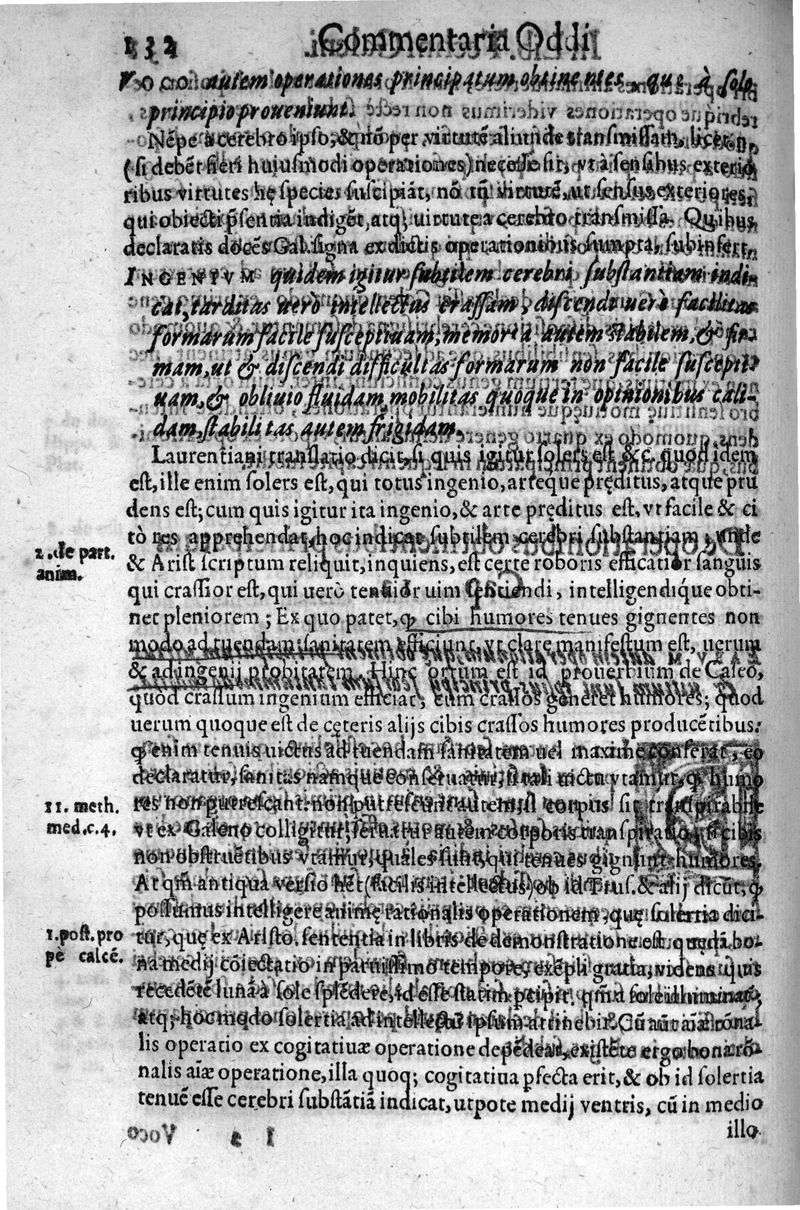 132 Commentaria Oddi
VOCO autem operationes principatum obtinentes, quę à solo
principio proueniunt.
Nẽpe a cerebro ipso, & nõ per virtutẽ aliunde transmissam, licet
(si debẽt fieri huiusmodi operationes) necesse sit, vt à sensibus exterio
ribus virtutes hę species suscipiãt, nõ tñ virtutẽ, ut sensus exteriores,
qui obiecti p̃sentia indigẽt, atq; uirtute a cerebro transmissa. Quibus
declaratis docẽs Gal. signa ex dictis operationibus sumpta, subinfert.
INGENIVM quidem igitur subtilem cerebri substantiam indi-
cat, tarditas uerò intellectus crassam, discendi uerò facilitas
formarum facile susceptiuam, memoria autem stabilem, & fir-
mam, ut & discendi difficultas formarum non facile suscepti-
uam, & obliuio fluidam, mobilitas quoque in opinionibus cali-
dam, stabilitas autem frigidam.
Laurentiani translatio dicit, si quis igitur solers est &c. quod idem
est, ille enim solers est, qui totus ingenio, arteque pręditus, atque pru
dens est; cum quis igitur ita ingenio, & arte pręditus est, vt facile & ci
tò res apprehendat, hoc indicat subtilem cerebri substantiam; unde
2. de part.
anim.
& Arist scriptum reliquit, inquiens, est certe roboris efficatior sanguis
qui crassior est, qui uerò tenuior uim sentiendi, intelligendique obti-
net pleniorem; Ex quo patet, ꝙ cibi humores tenues gignentes non
modo ad tuendam sanitatem efficiunt, vt clare manifestum est, uerum
& ad ingenij probitatem. Hinc ortum est id prouerbium de Caseo,
quòd crassum ingenium efficiat, cum crassos generet humores; quod
uerum quoque est de cęteris alijs cibis crassos humores producẽtibus:
ꝙ enim tenuis uictus ad tuendam sanitatem uel maxime conferat, eo
declaratur, sanitas namque conseruatur, si tali uictu vtamur, ꝙ humo
11. meth.
med. c. 4.
res non putrescant: non putrescunt autem, si corpus sit transpirabile
vt ex Galeno colligitur; seruatur autem corporis transpiratio, si cibis
non obstruẽtibus vtamur, quales sunt, qui tenues gignunt humores.
At qm̃ antiqua versio hẽt (facilis intellectus) ob id Trus. & alij dicũt, ꝙ
possumus intelligere animę rationalis operationem, quę solertia dici-
1. post. pro
pe calcẽ.
tur, quę ex Aristo. sententia in libris de demonstratione est quędã bo-
na medij cõiectatio in paruissimo tempore, exẽpli gratia, videns quis
recedẽtẽ lunã a sole splẽdere, id esse statim p̃cipit, qm̃ a sole illuminat;
atq; hoc modo solertia ad intellectũ ipsum attinebit. Cũ aũt aĩæ rõna-
lis operatio ex cogitatiuæ operatione depẽdeat, existẽte ergo bona rõ-
nalis aĩæ operatione, illa quoq; cogitatiua p̃fecta erit, & ob id solertia
tenuẽ esse cerebri substãtiã indicat, utpote medij ventris, cũ in medio
illo